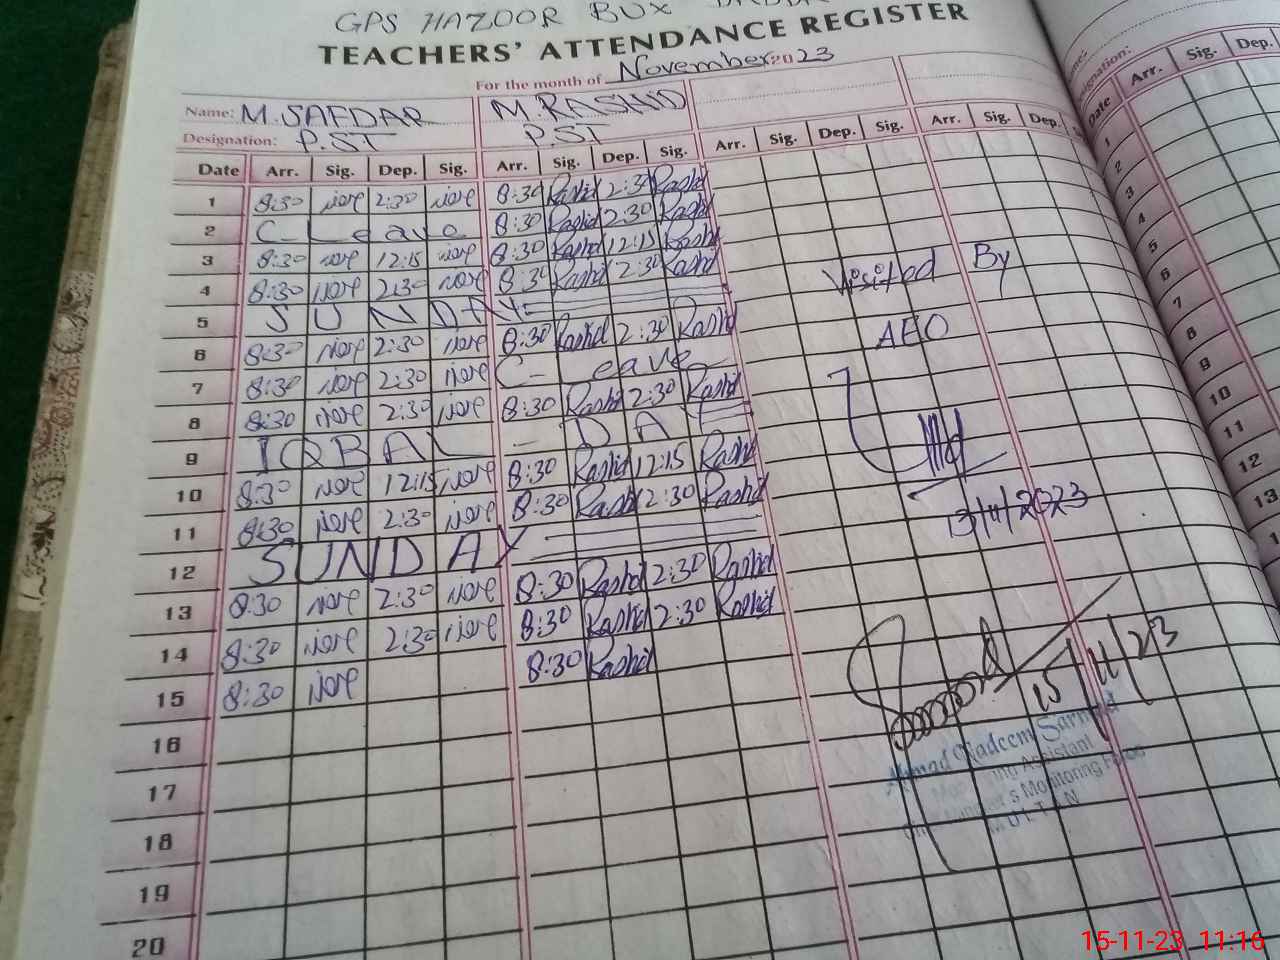 GPS HAZOOR BUX
TEACHERS' ATTENDANCE REGISTER
For the month of November 2023
Name: M. SAFDAR M. RASHID
Designation: P.ST P.ST
Date Arr. Sig. Dep. Sig. Arr. Sig. Dep. Sig. Arr. Sig. Dep. Sig. Arr. Sig. Dep.
1 8:30 2:30 8:30 Rashid 2:30 Rashid
2 C- Leave 8:30 Rashid 2:30 Rashid
3 8:30 12:15 8:30 Rashid 12:15 Rashid
4 8:30 2:30 8:30 Rashid 2:30 Rashid
5 SUNDAY
6 8:30 2:30 8:30 Rashid 2:30 Rashid
7 8:30 2:30 C- eave
8 8:30 2:30 8:30 Rashid 2:30 Rashid
9 IQBAL - DAY
10 8:30 12:15 8:30 Rashid 12:15 Rashid
11 8:30 2:30 8:30 Rashid 2:30 Rashid
12 SUNDAY
13 8:30 2:30 8:30 Rashid 2:30 Rashid
14 8:30 2:30 8:30 Rashid 2:30 Rashid
15 8:30 8:30 Rashid
16
17
18
19
20
Visited By
AEO
13/11/2023
15/11/23
Ahmad Nadeem Sarmad
ing Assistant
Chief Minister's Monitoring Force
MULTAN
Designation:
Date Arr. Sig. Dep.
1
2
3
4
5
6
7
8
9
10
11
12
13
15-11-23 11:16